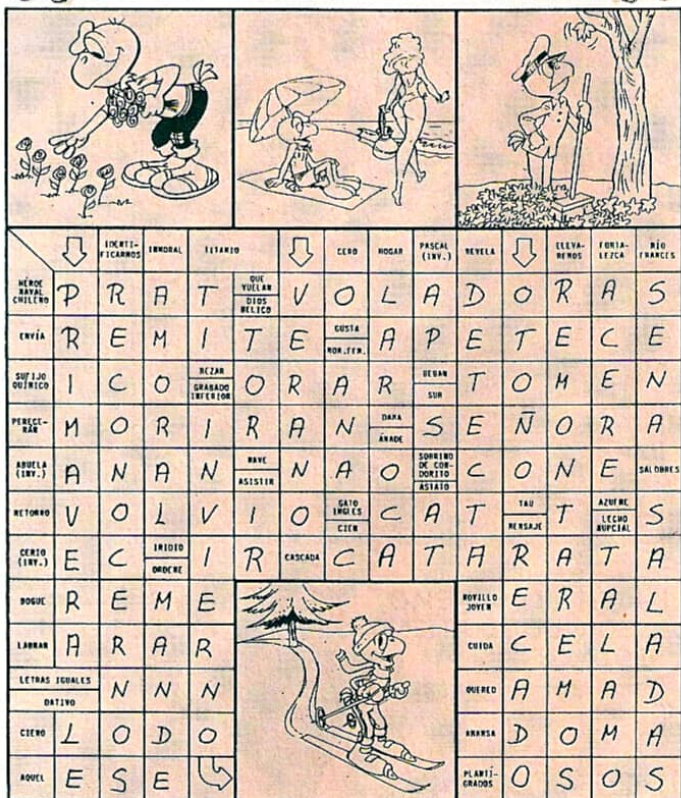 IDENTI-FICARNOS INMORAL TITANIO CERO HOGAR PASCAL (INV.) REVELA ELEVA-REMOS FORTA-LEZCA RÍO FRANCES
HÉROE NAVAL CHILENO P R A T QUE VUELAN DIOS BELICO V O L A D O R A S
ENVÍA R E M I T E GUSTA NOM.FEM. A P E T E C E
SUFIJO QUÍMICO I C O REZAR GRABADO INFERIOR O R A R BEBAN SUR T O M E N
PERECE-RÁN M O R I R A N DAMA ÁNADE S E Ñ O R A
ABUELA (INV.) A N A N NAVE ASISTIR N A O SOBRINO DE CON-DORITO ASTATO C O N E SALOBRES
RETORNO V O L V I O GATO INGLES CIEN C A T TAU MENSAJE T AZUFRE LECHO NUPCIAL S
CERIO (INV.) E C IRIDIO ORDENE I R CASCADA C A T A R A T A
BOGUE R E M E NOVILLO JOVEN E R A L
LABRAR A R A R CUIDA C E L A
LETRAS IGUALES DATIVO N N N QUERED A M A D
CIENO L O D O AMANSA D O M A
AQUEL E S E PLANTÍ-GRADOS O S O S